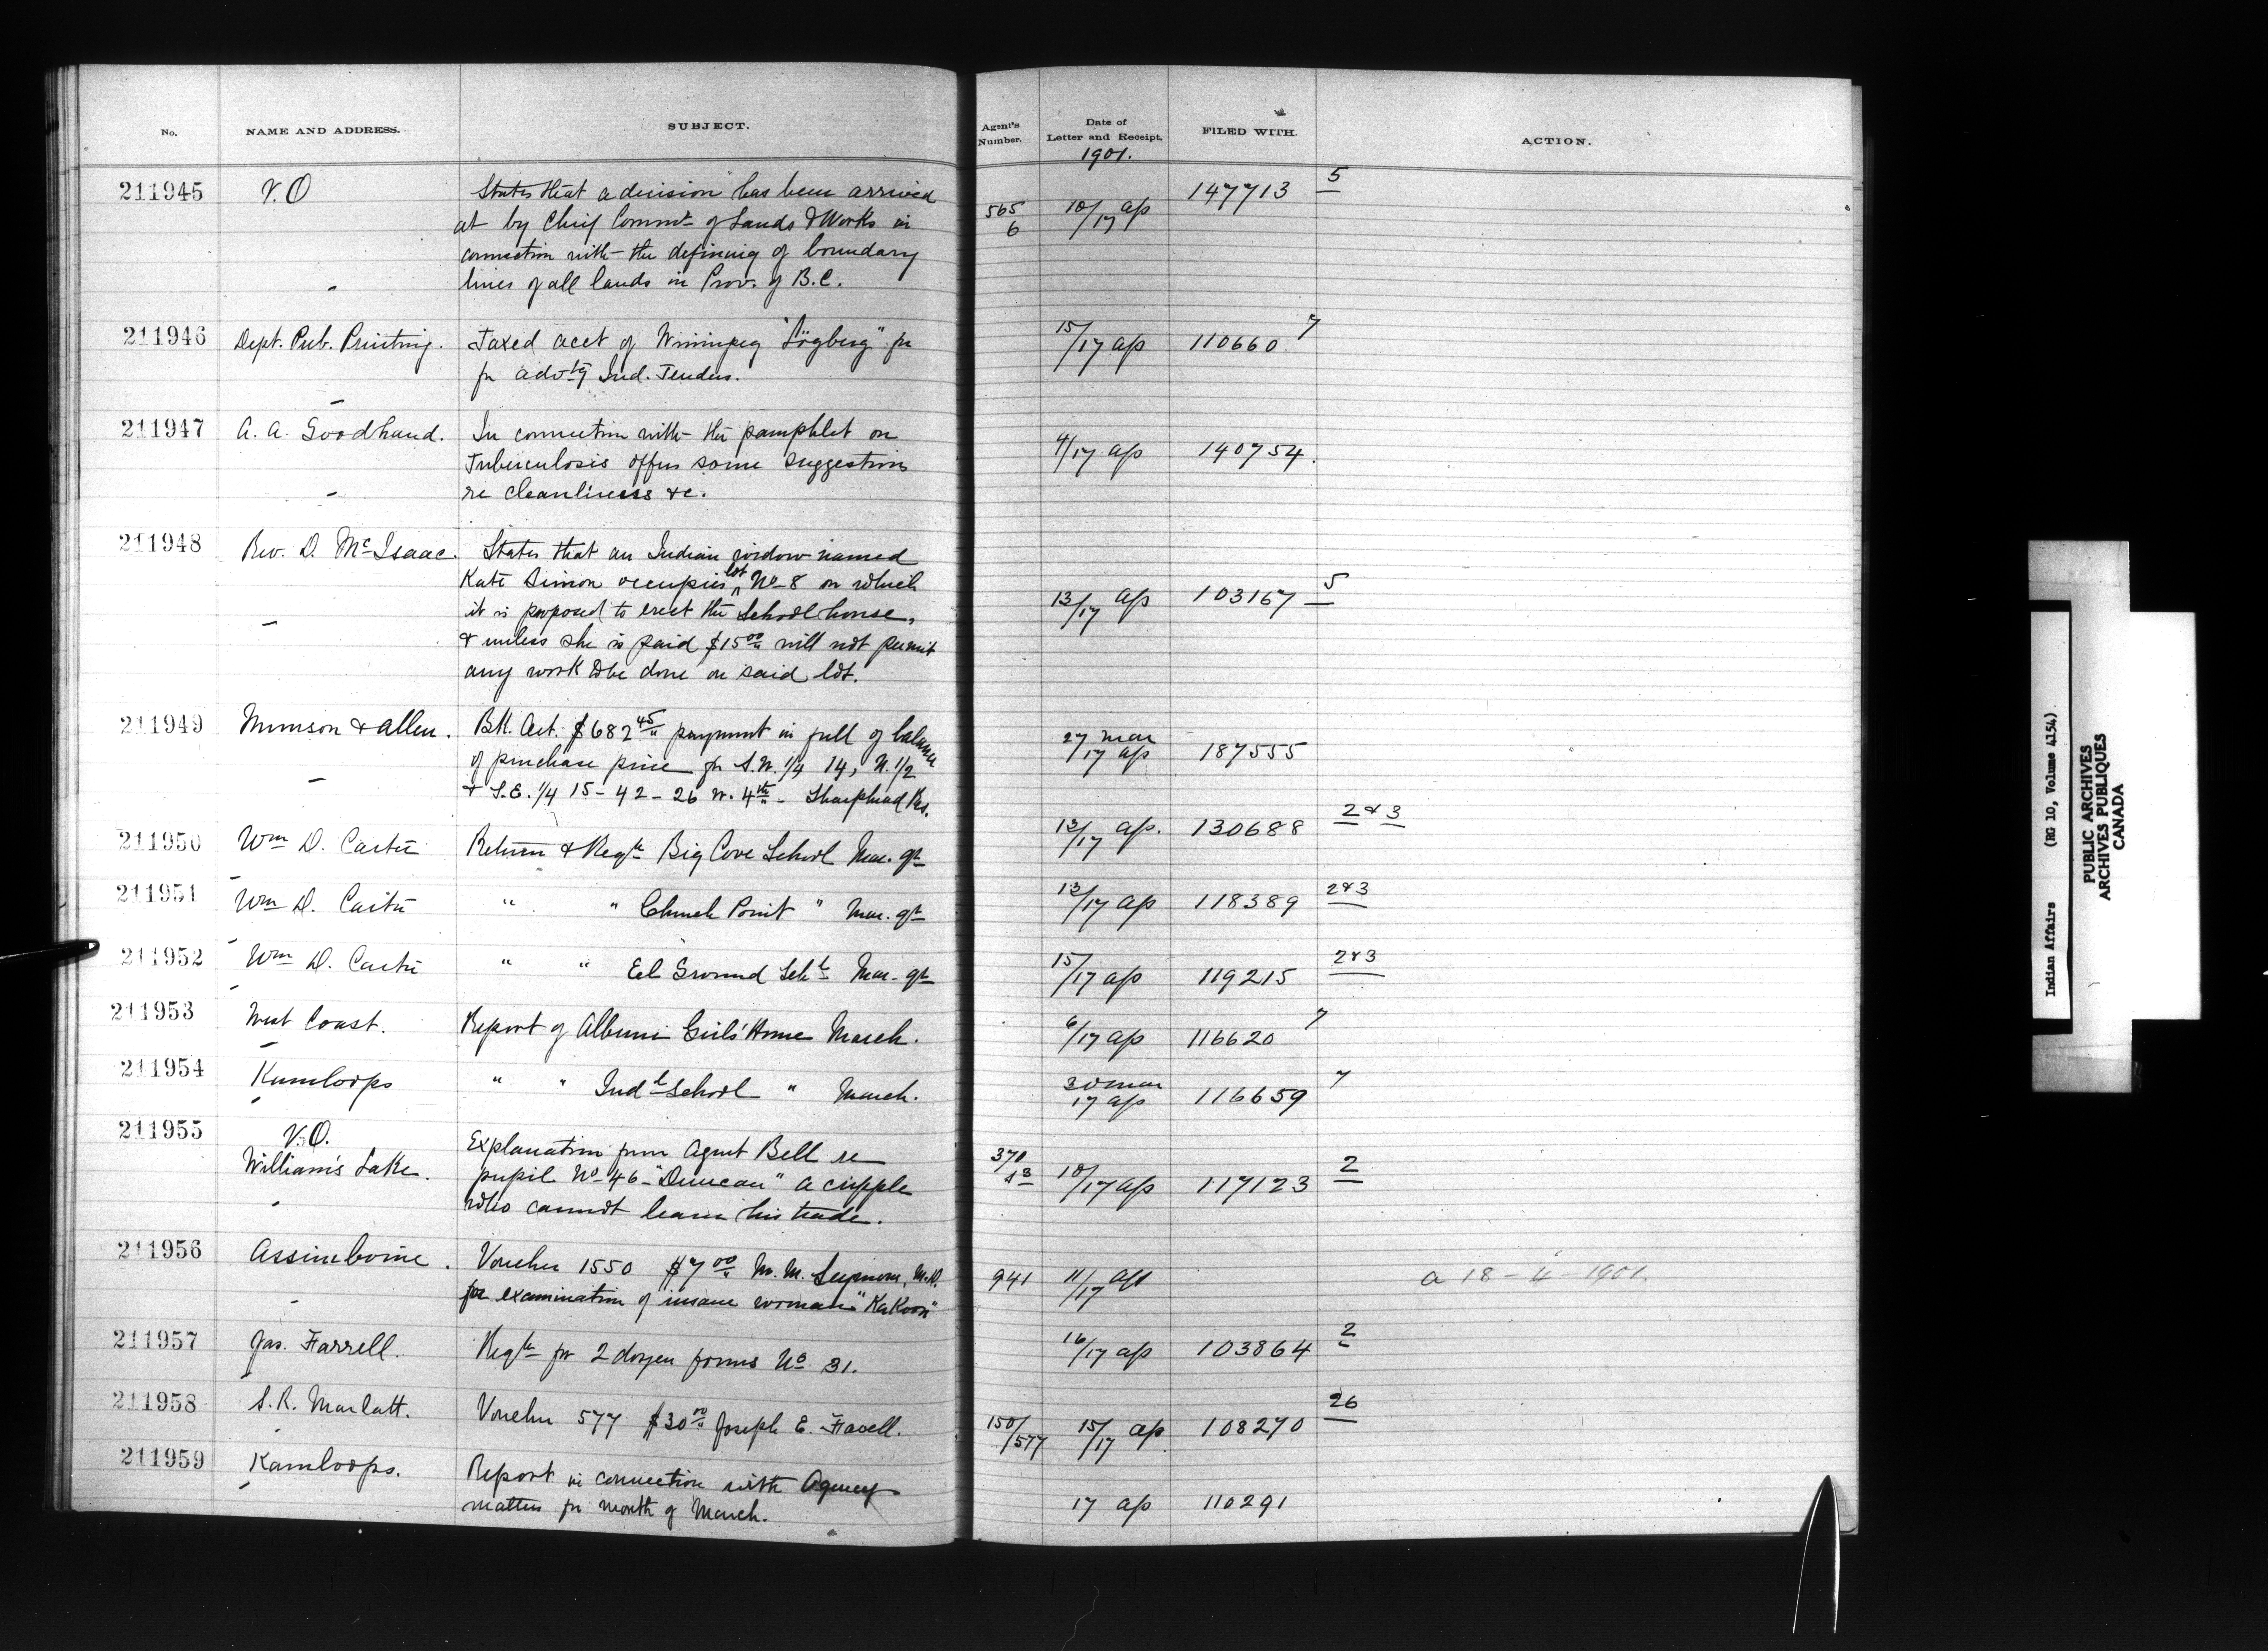 No.
NAME AND ADDRESS.
SUBJECT.
Agent's
Number.
Date of
Letter and Receipt.
1901.
FILED WITH.
ACTION.
211945
V.O
States that a decision has been arrived
at by Chief Commr. of Lands & Works in
connection with the defining of boundary
lines of all lands in Prov. of B.C.
565
6
10/17 ap
147713
5
211946
Dept. Pub. Printing.
Taxed acct of Winnipeg "Lögberg" for
for advtg Ind. Tenders.
15/17 ap
110660
7
211947
A. A. Goodhand.
In connection with the pamphlet on
Tuberculosis offers some suggestions
re cleanliness &c.
4/17 ap
140754.
211948
Rev. D. McIsaac.
States that an Indian widow named
Kate Simon occupies lot No 8 on which
it is proposed to erect the School house,
& unless she is paid $15 00 will not permit
any work to be done on said lot.
13/17 ap
103167
5
211949
Munson & Allen.
Bk. Cert. $682 45 payment in full of balance
of purchase price for S.W. 1/4 14, N. 1/2
& S.E. 1/4 15 - 42 - 26 W. 4th - Sharphead Res.
27 mar
/17 ap
187555
211950
Wm D. Carter
Return & Reqn Big Cove School Mar. qr
13/17 ap.
130688
2 & 3
211951
Wm D. Carter
" " Church Point " Mar. qr
13/17 ap
118389
2 & 3
211952
Wm D. Carter
" " Eel Ground Schl Mar. qr
15/17 ap
119215
2 & 3
211953
West Coast.
Report of Alberni Girls' Home March.
6/17 ap
116620
7
211954
Kamloops
" " Indl School " March.
30 mar
17 ap
116659
7
211955
V.O.
William's Lake.
Explanation from Agent Bell re
pupil No 46 - "Duncan" a cripple
who cannot learn his trade.
370
13
10/17 ap
117123
2
211956
Assiniboine.
Voucher 1550 $7 00 M. M. Seymour, M.D.
for examination of insane woman "KaKoon"
941
11/17 ap
a 18 - 4 - 1901.
211957
Jas. Farrell.
Reqn for 2 dozen forms No 31.
16/17 ap
103864
2
211958
S. R. Marlatt.
Voucher 577 $30 00 Joseph E. Favell.
150/577
15/17 ap
108270
26
211959
Kamloops.
Report in connection with Agency
matters for month of March.
17 ap
110291
Indian Affairs (RG 10, Volume 4154)
PUBLIC ARCHIVES
ARCHIVES PUBLIQUES
CANADA